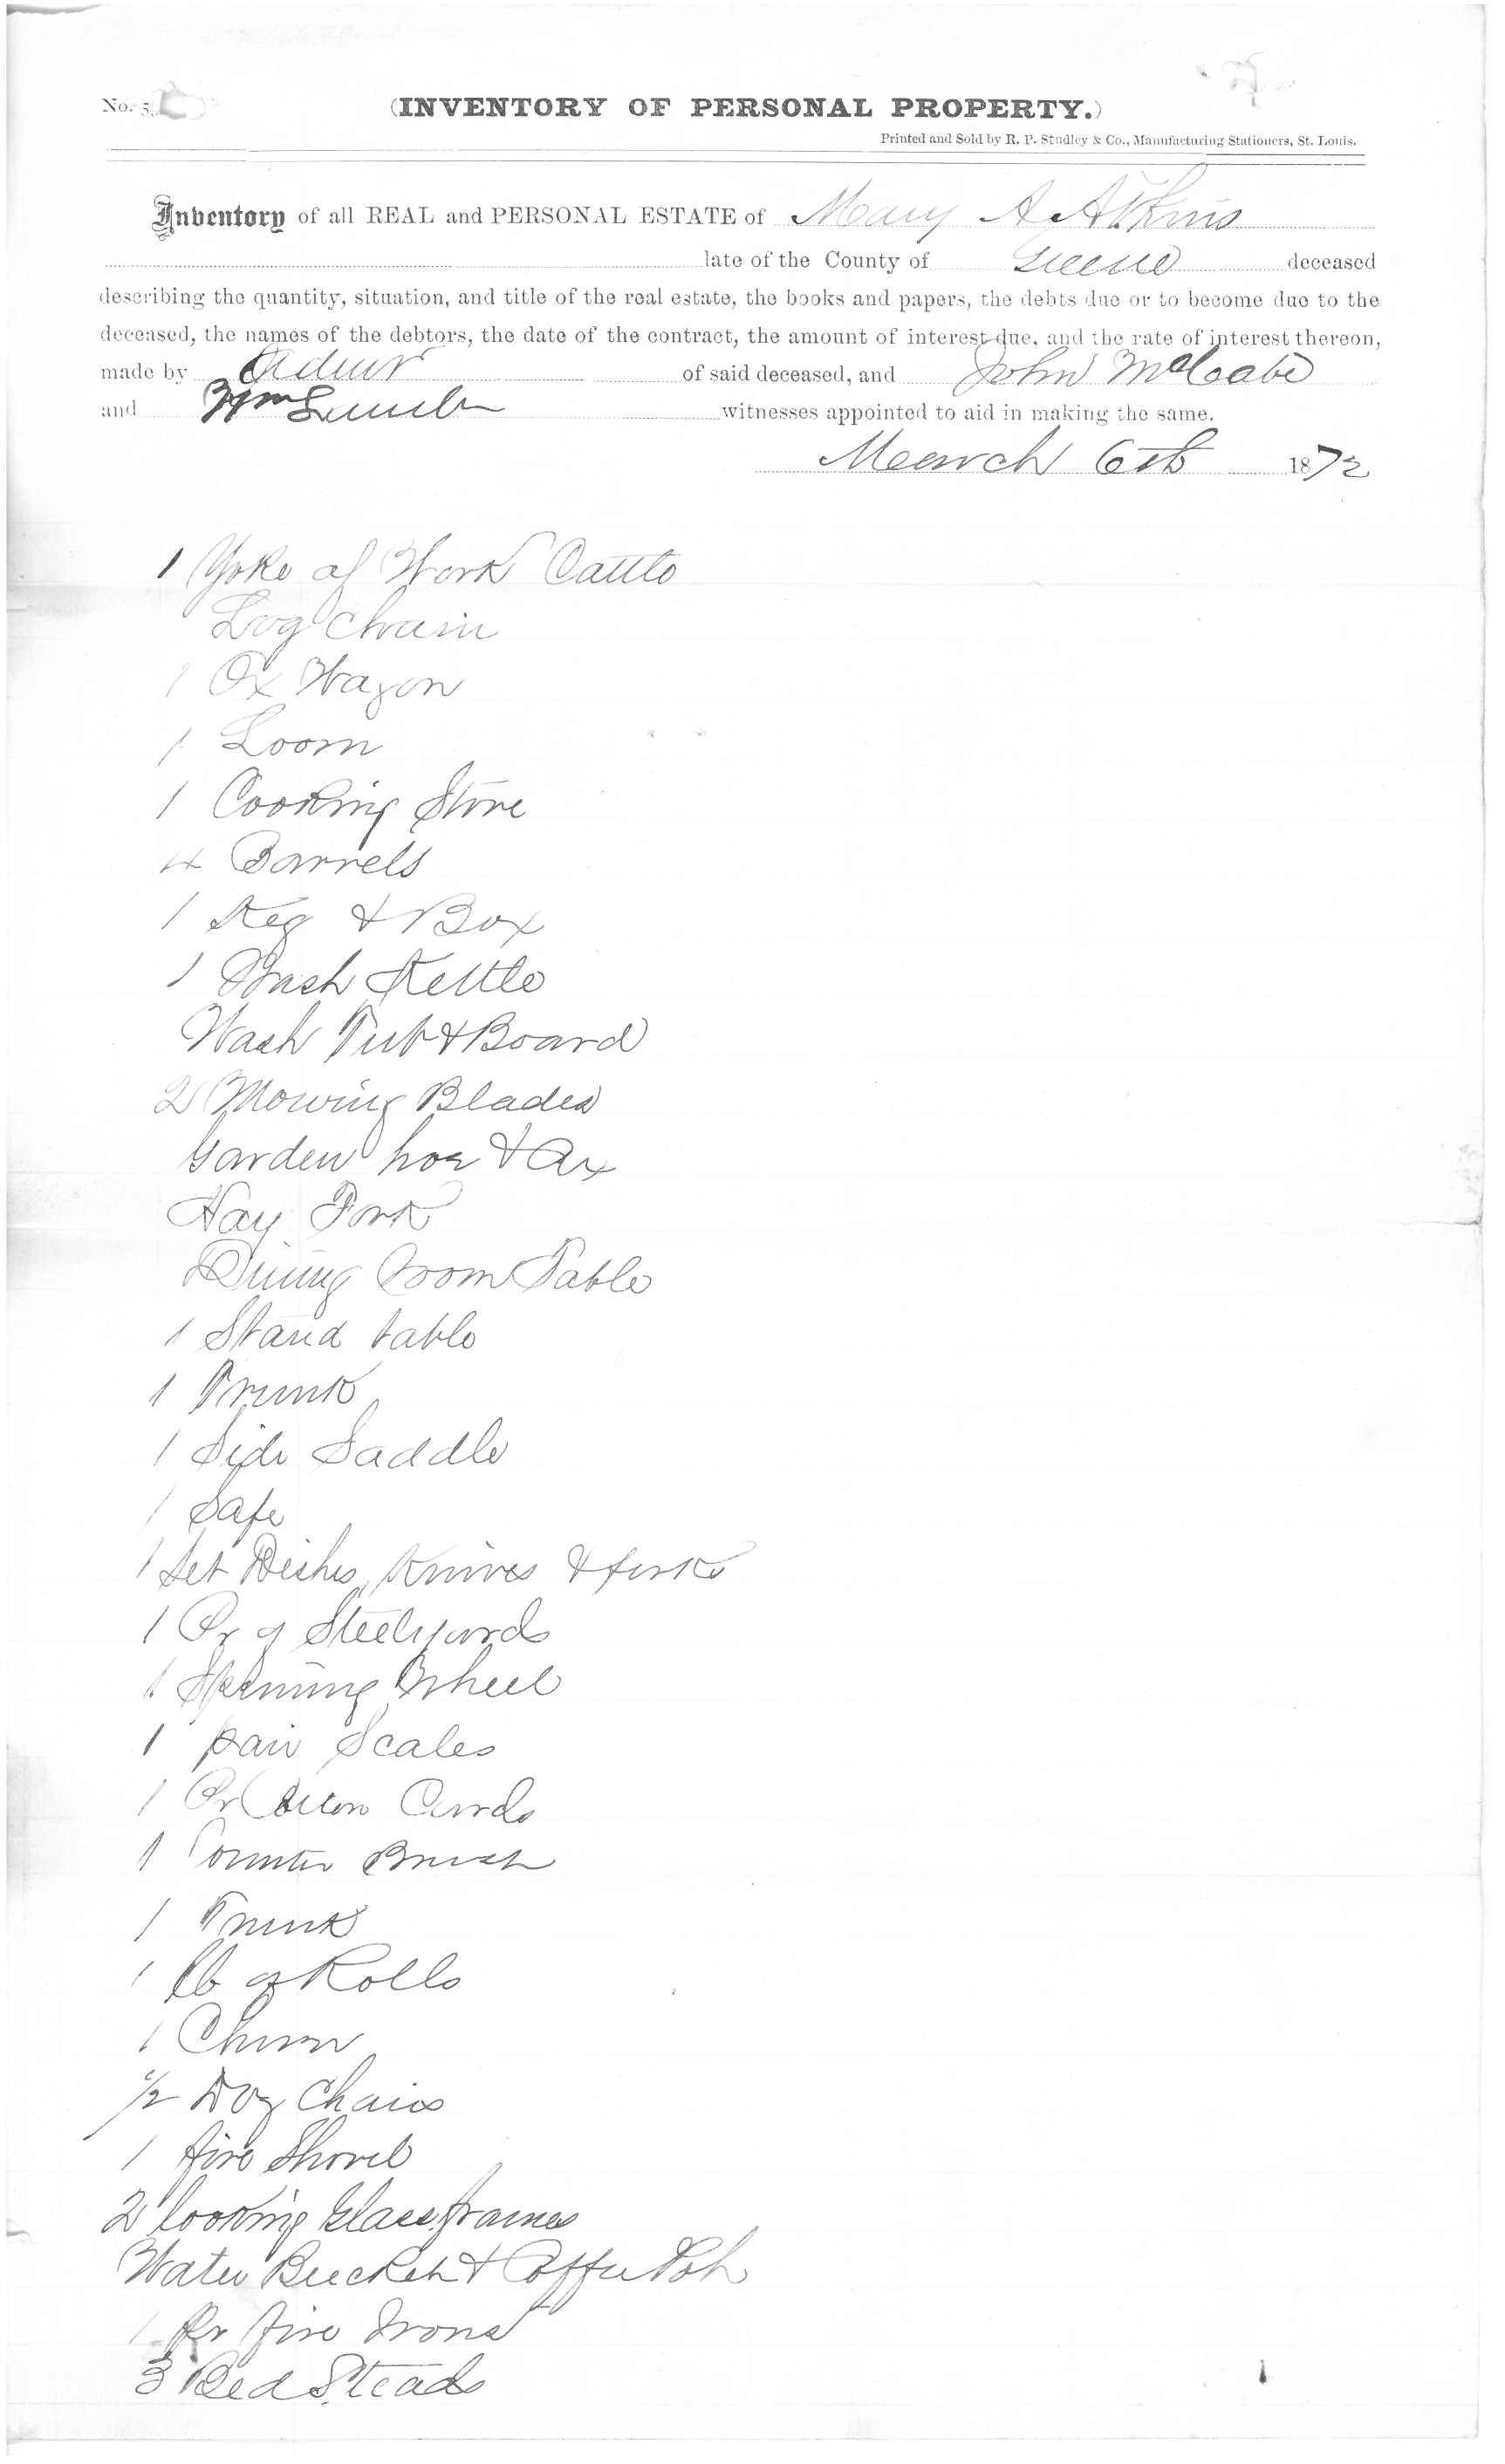 No. 5
(INVENTORY OF PERSONAL PROPERTY.)
Printed and Sold by R. P. Studley & Co., Manufacturing Stationers, St. Louis.
Inventory of all REAL and PERSONAL ESTATE of Mary A Atkins
late of the County of Greene deceased
describing the quantity, situation, and title of the real estate, the books and papers, the debts due or to become due to the
deceased, the names of the debtors, the date of the contract, the amount of interest due, and the rate of interest thereon,
made by Admr of said deceased, and John McCabe
and Wm witnesses appointed to aid in making the same.
March 6th 1872
1 Yoke of Work Cattle
Log Chain
1 Ox Wagon
1 Loom
1 Cooking Stove
4 Barrels
1 Keg & Box
1 Wash Kettle
Wash Tub & Board
2 Mowing Blades
Garden hoe & Ax
Hay Fork
Dining room Table
1 Stand table
1 Trunk
1 Side Saddle
1 Safe
1 Set Dishes, Knives & forks
1 Pr of Steelyards
1 Spinning Wheel
1 pair Scales
1 Pr Cotton Cards
1 Counter Brush
1 Trunk
1 lb of Rolls
1 Churn
1/2 Doz Chairs
1 fire Shovel
2 looking Glass frames
Water Bucket & Coffee Pot
1 Pr fire Irons
3 Bed Steads